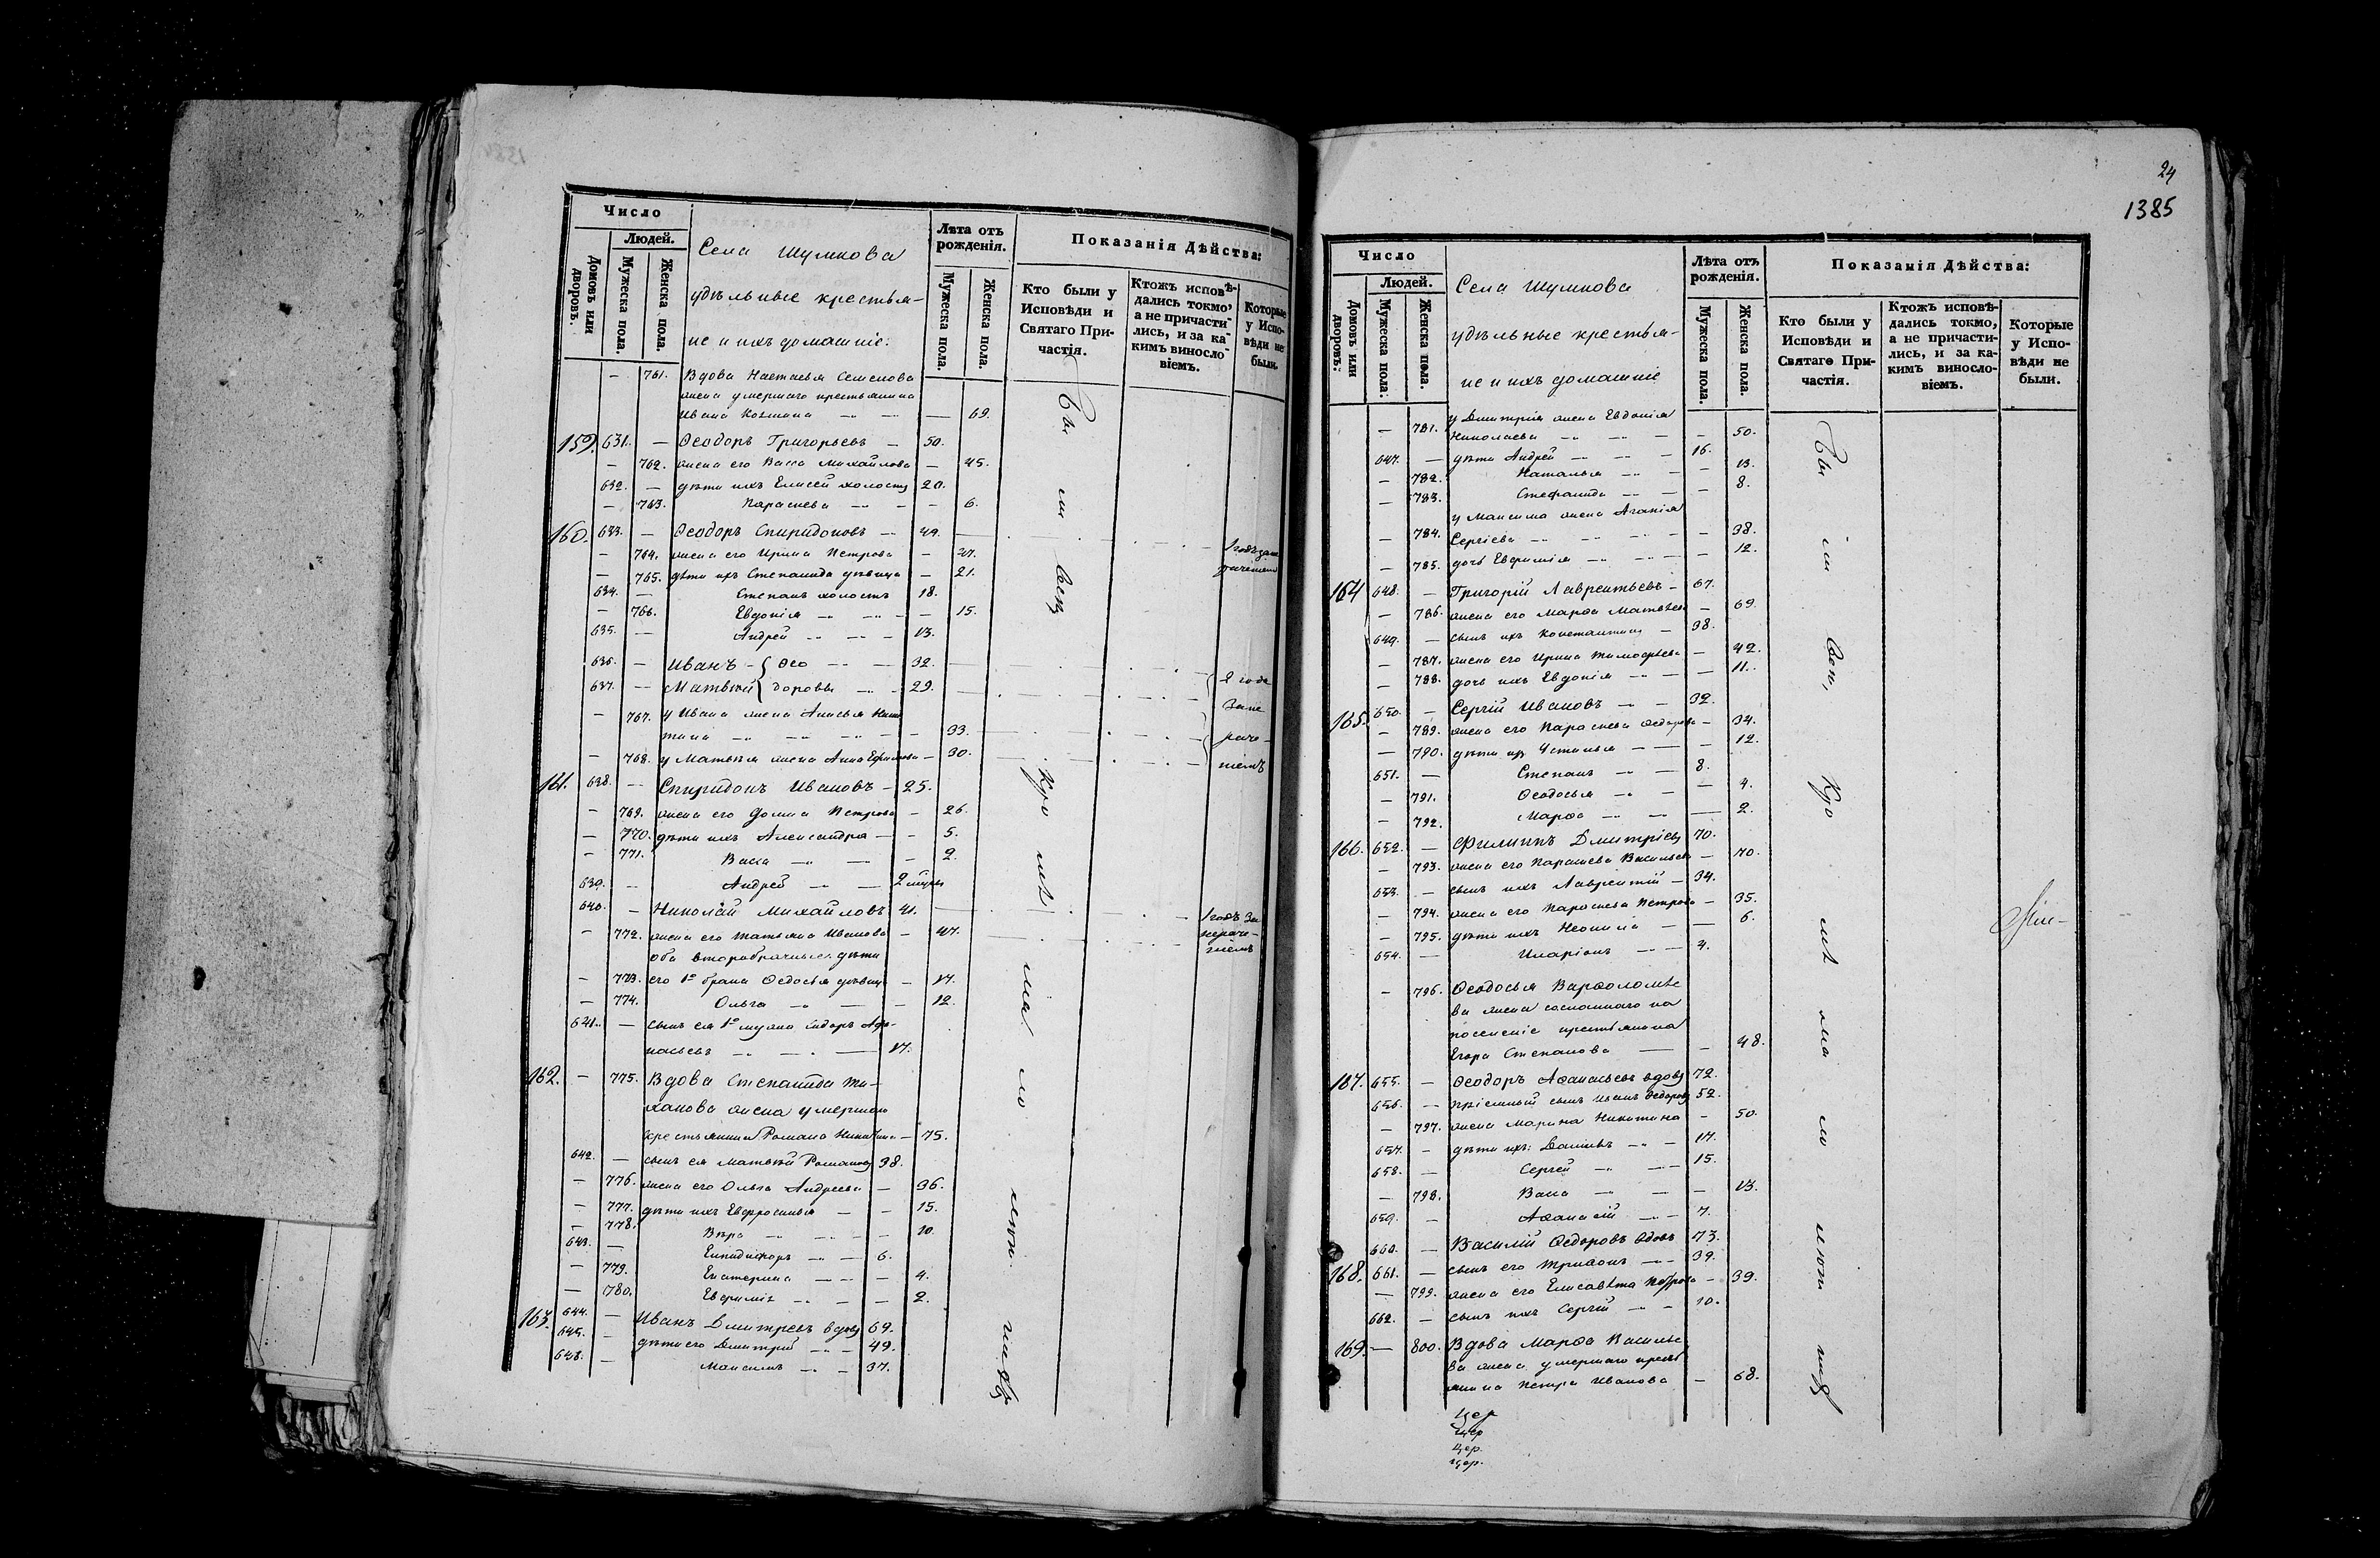 Число
Людей.
Домовъ или дворовъ.
Мужеска пола.
Женска пола.
Села Шумкова
удѣльные крестья-
не и ихъ домашніе:
Лѣта отъ рожденія.
Мужеска пола.
Женска пола.
Показанія Дѣйства:
Кто были у Исповѣди и Святаго Причастія.
Ктожъ исповѣдались токмо, а не причастились, и за какимъ винословіемъ.
Которые у Исповѣди не были.
— 761. Вдова Настасья Семенова
жена умершаго крестьянина
Ивана Козмина — 69.
159. 631. — Ѳеодоръ Григорьевъ — 50.
— 762. жена его Васса Михайлова — 45.
632. — дѣти ихъ Елисей холостъ 20.
— 763. Параскева — 6.
160. 633. — Ѳеодоръ Спиридоновъ — 49.
— 764. жена его Ирина Петрова — 47.
— 765. дѣти ихъ Степанида дѣвица — 21.
634. — Степанъ холостъ 18.
— 766. Евдокія — 15.
635. — Андрей — 13.
636. — Иванъ { Ѳео — 32.
637. — Матвѣй { доровы — 29.
— 767. у Ивана жена Анисья Ники
тина — 33.
— 768. у Матвѣя жена Анна — 30.
161. 638. — Спиридонъ Ивановъ — 25.
— 769. жена его Домна Петрова — 26.
— 770. дѣти ихъ Александра — 5.
— 771. Васса — 2.
639. — Андрей — 2
640. — Николай Михайловъ 41.
— 772. жена его Татьяна Иванова — 47.
оба второбрачные дѣти
— 773. его 1го брака Ѳедосья дѣвица — 17.
— 774. Ольга — 12.
641. — сынъ ея 1го мужа Сидоръ Аѳа-
насьевъ — 17.
162. — 775. Вдова Степанида Ти-
ханова жена умершаго
крестьянина Романа Никитина — 75.
642. — сынъ ея Матвѣй Романовъ 38.
— 776. жена его Ольга Андреева — 36.
— 777. дѣти ихъ Евфросинья — 15.
— 778. Вѣра — 10.
643. — Елпидифоръ — 6.
— 779. Екатерина — 4.
— 780. Евфимія — 2.
163. 644. — Иванъ Дмитревъ вдовъ 69.
645. — дѣти его Дмитрій — 49.
646. — Максимъ — 37.
24
1385
Число
Людей.
Домовъ или дворовъ.
Мужеска пола.
Женска пола.
Села Шумкова
удѣльные крестья-
не и ихъ домашніе
Лѣта отъ рожденія.
Мужеска пола.
Женска пола.
Показанія Дѣйства:
Кто были у Исповѣди и Святаго Причастія.
Ктожъ исповѣдались токмо, а не причастились, и за какимъ винословіемъ.
Которые у Исповѣди не были.
— 781. у Дмитрія жена Евдокія
Николаева — 50.
647. — дѣти Андрей — 16.
— 782. Наталья — 13.
— 783. Стефанида — 8.
у Максима жена Агапія
— 784. Сергіева — 38.
— 785. дочь Евфимія — 12.
164 648. — Григорій Лаврентьевъ — 67.
— 786. жена его Марѳа Матвѣева — 69.
649. — сынъ ихъ Константинъ — 38.
— 787. жена его Ирина Тимофѣева — 42.
— 788. дочь ихъ Евдокія — 11.
165. 650. — Сергій Ивановъ — 32.
— 789. жена его Параскева Ѳедорова — 34.
— 790. дѣти ихъ Устинья — 12.
651. — Степанъ — 8.
— 791. Ѳеодосья — 4.
— 792. Марѳа — 2.
166. 652. — Филиппъ Дмитріевъ 70.
— 793. жена его Параскева Васильева — 70.
653. — сынъ ихъ Лаврентій — 34.
— 794. жена его Параскева Петрова — 35.
— 795. дѣти ихъ Неонила — 6.
654. — Иларіонъ — 4.
— 796. Ѳеодосья Варѳоломѣе
ва жена сосланнаго на
поселеніе крестьянина
Егора Степанова — 48.
167. 655. — Ѳеодоръ Аѳанасьевъ вдовъ 72.
656. — пріемный сынъ Иванъ Ѳедоровъ 52.
— 797. жена Марина Никитина — 50.
657. — дѣти ихъ: Даніилъ — 17.
658. — Сергей — 15.
— 798. Васса — 13.
659. — Аѳанасій — 7.
660. — Василій Ѳедоровъ вдовъ 73.
168. 661. — сынъ его Трифонъ — 39.
— 799. жена его Елисавета Петрова — 39.
662. — сынъ ихъ Сергій — 10.
169. — 800. Вдова Марѳа Василье
ва жена умершаго крест
янина Петра Иванова — 68.
Цер
Цер
Цер.
Цер.